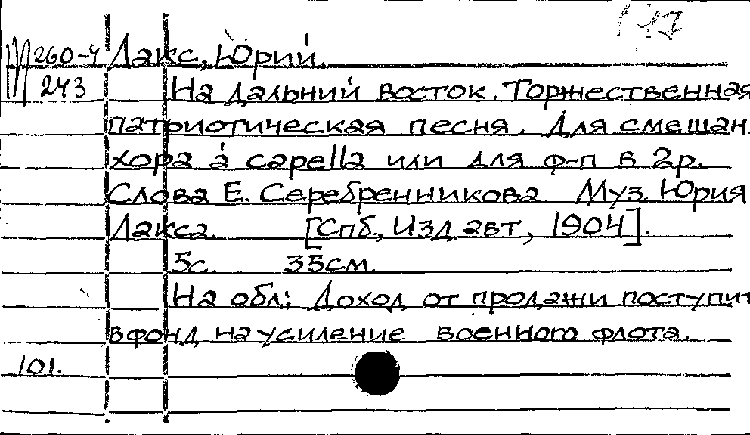 М260-4 Лакс, Юрий.
243 На дальний восток. Торжественная
патриотическая песня. Для смешан.
хора à capella или для ф-п в 2р.
Слова Е. Серебренникова Муз. Юрия
Лакса. [Спб, Изд. авт, 1904].
5с. 35см.
На обл: Доход от продажи поступит
в фонд на усиление военного флота.
101.